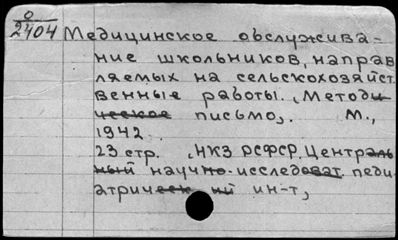 0
2404
Медицинское обслужива-
ние школьников, направ
ляемых на сельскохозяйст
венные работы. (Методи
ческое письмо). М.,
1942.
23 стр. (НКЗ РСФСР. Централь
ный научно-исследоват. педи
атрическ ий ин-т)